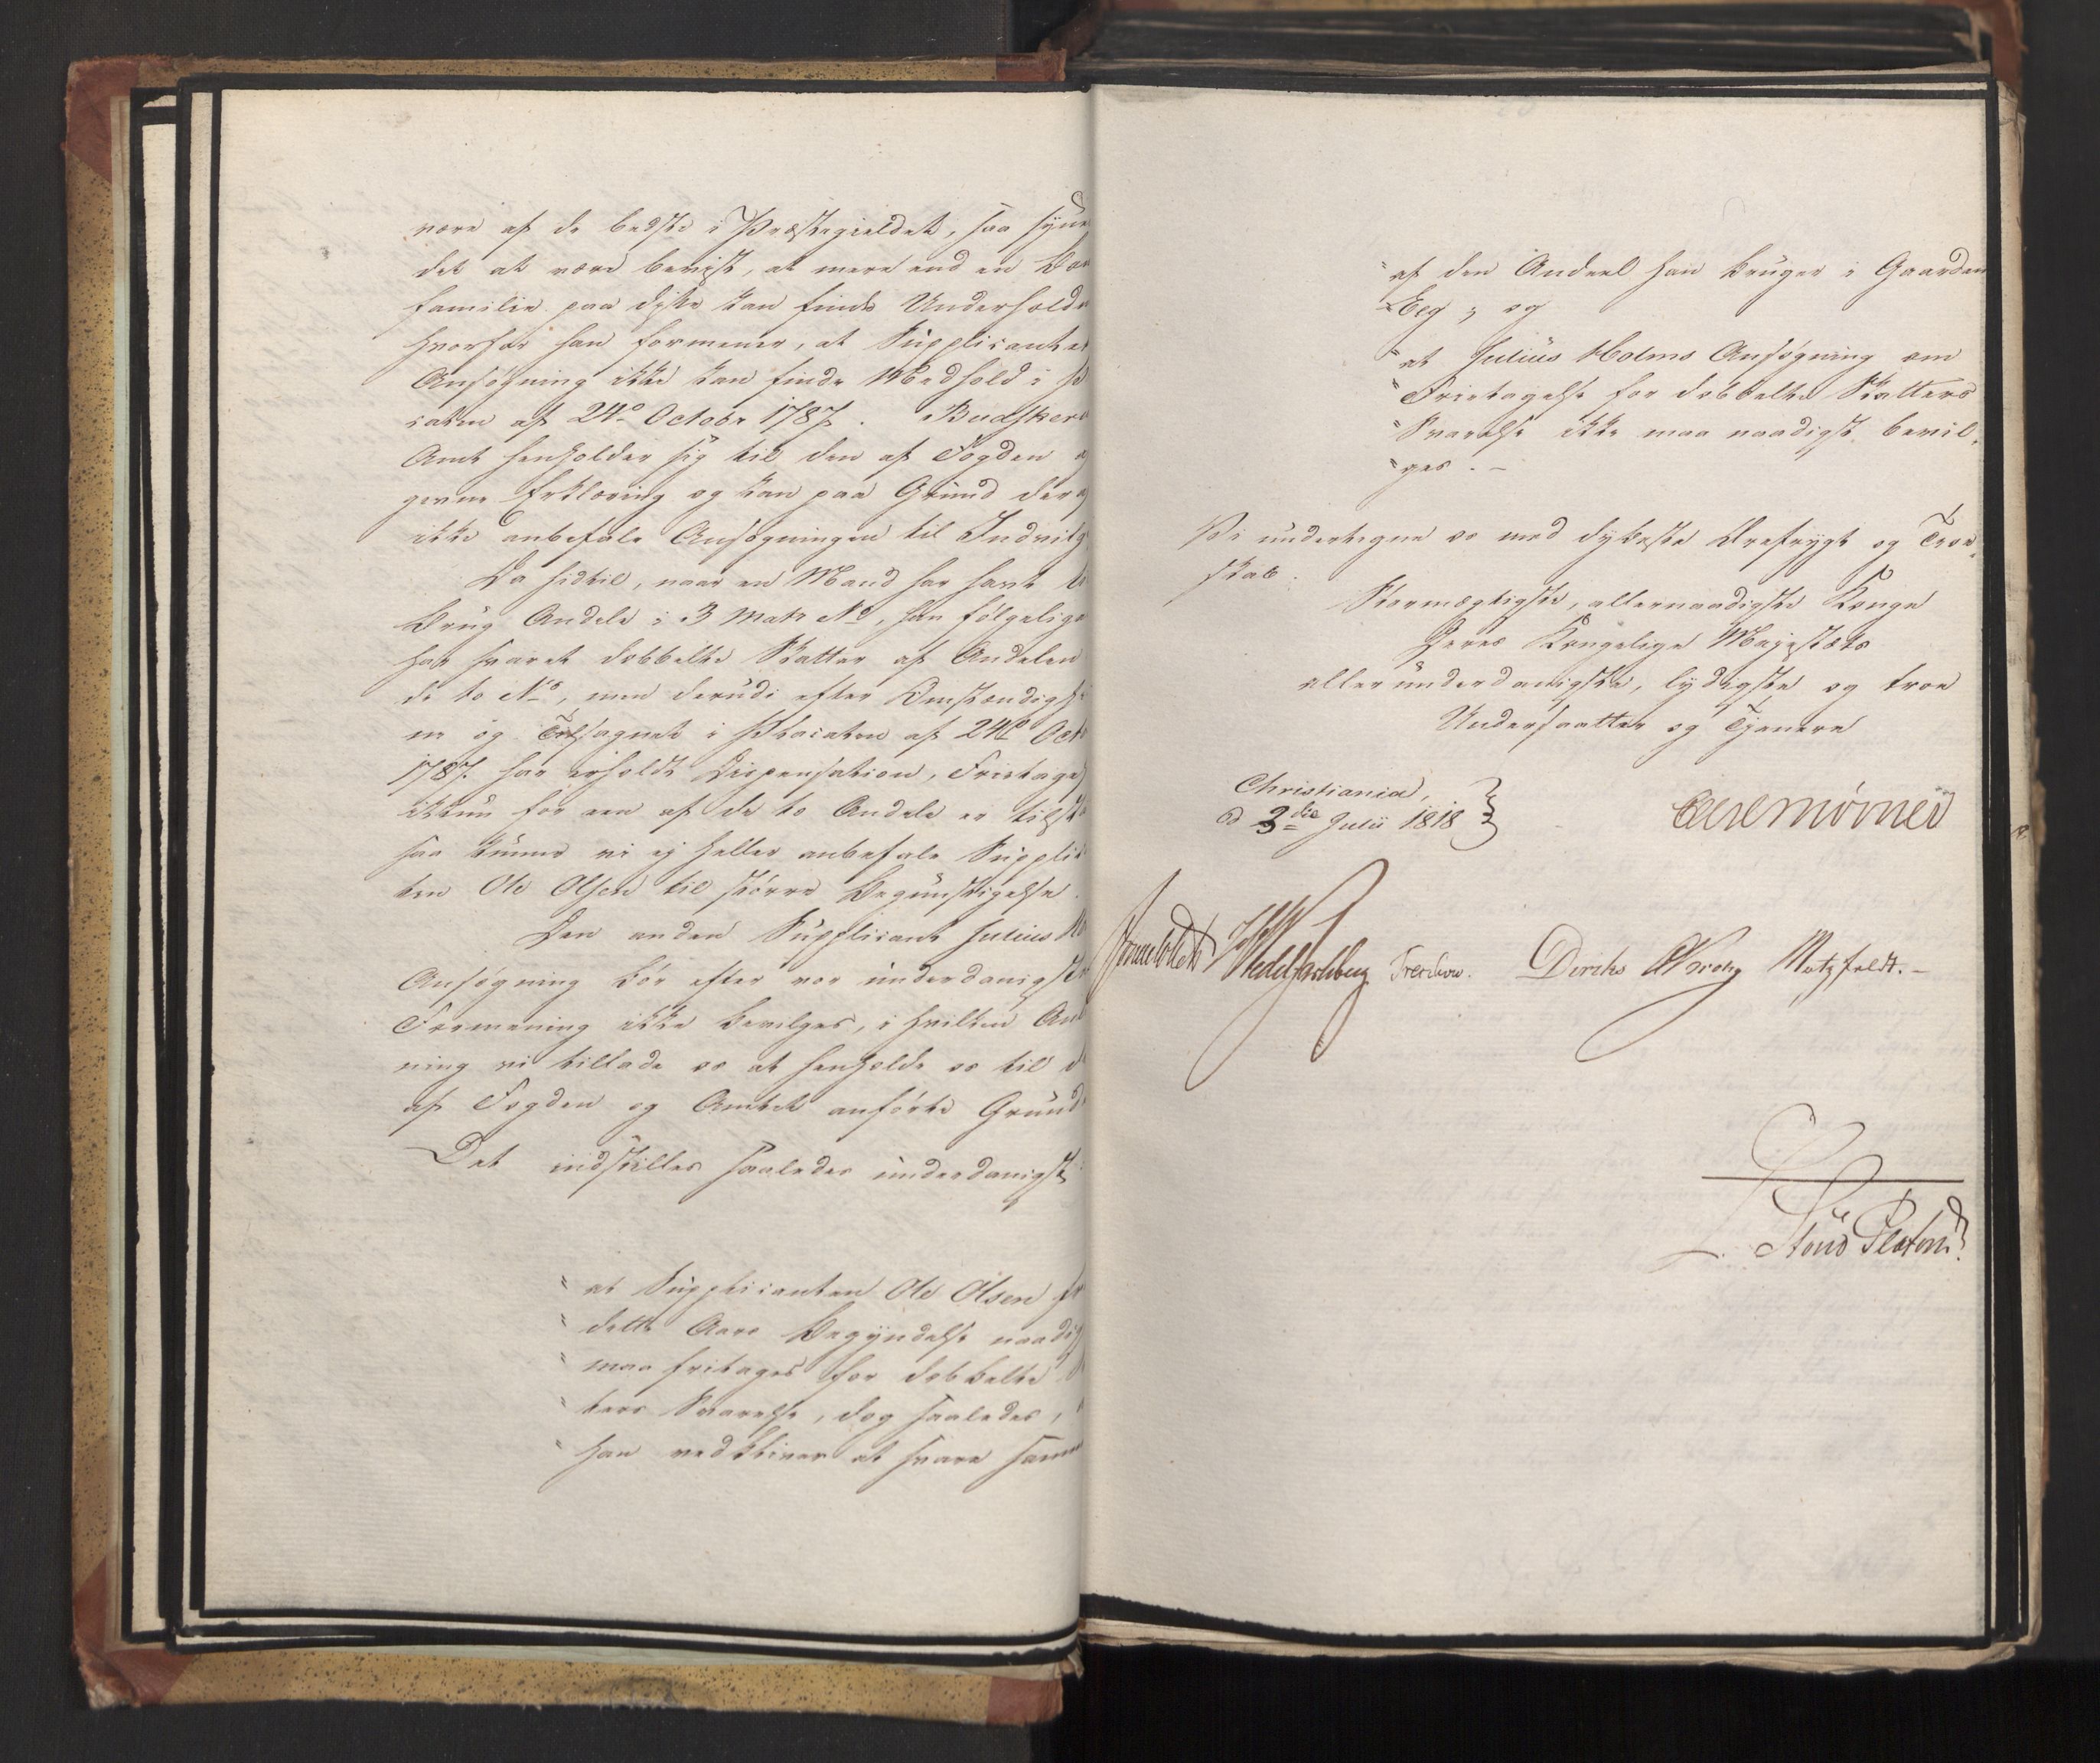 være af de bedste i Præstegieldet, saa syne
det at være beviist, at mere end en Bon
familie paa disse kan finde Underhold
hvorfor han formener, at Supplicanten
Ansøgning ikke kan finde Medhold i
caten af 24de Octobr 1787. Budskeru
Amt henholder sig til den af Fogden a
givne Erklæring og kan paa Grund deraf
ikke anbefale Ansøgningen til Indvilg
Da hidtil, naar en Mand har havt ti
Brug Andele i 3 Matr No, han følgelige
har svaret dobbelte Skatter af Andelen
de to No, men derudi efter Omstændigh
ne og Tilsagnet i Placaten af 24de Octo
1787 har erholdt Dispensation, Fritagel
ikkun for een af de to Andele er tilst
saa kunne vi ej heller anbefale Supplic
ten Ole Olsen til større Begunstigelse.
Den anden Supplicant Julius Ho
Ansøgning bør efter vor underdanigste
Formening ikke bevilges, i hvilken An
ning vi tillade os at henholde os til d
af Fogden og Amtet anførte Grund
Det indstilles saaledes underdanigst:
" at Supplicanten Ole Olsen fr
" dette Aars Begyndelse naadig
" maa fritages for dobbelte
" ters Svarelse, dog saaledes,
" han vedbliver at svare samm
" af den Andeel han bruger i Gaarden
" Eeg; og
" at Julius Holms Ansøgning om
" Fritagelse for dobbelte Skatters
" Svarelse ikke maa naadigst bevil-
" ges. -
Vi undertegne os med dybeste Ærefrygt og Troe-
skab.
Stormægtigste, allernaadigste Konge
Deres Kongelige Majestæts
allerunderdanigste, lydigste og troe
Undersaatter og Tjenere
Christiania,
d 3die Julii 1818
CarlMörner
Sommerhielm Wedel Jarlsberg Treschow. Diriks Krog Motzfeldt. -
L. Stoud Platou